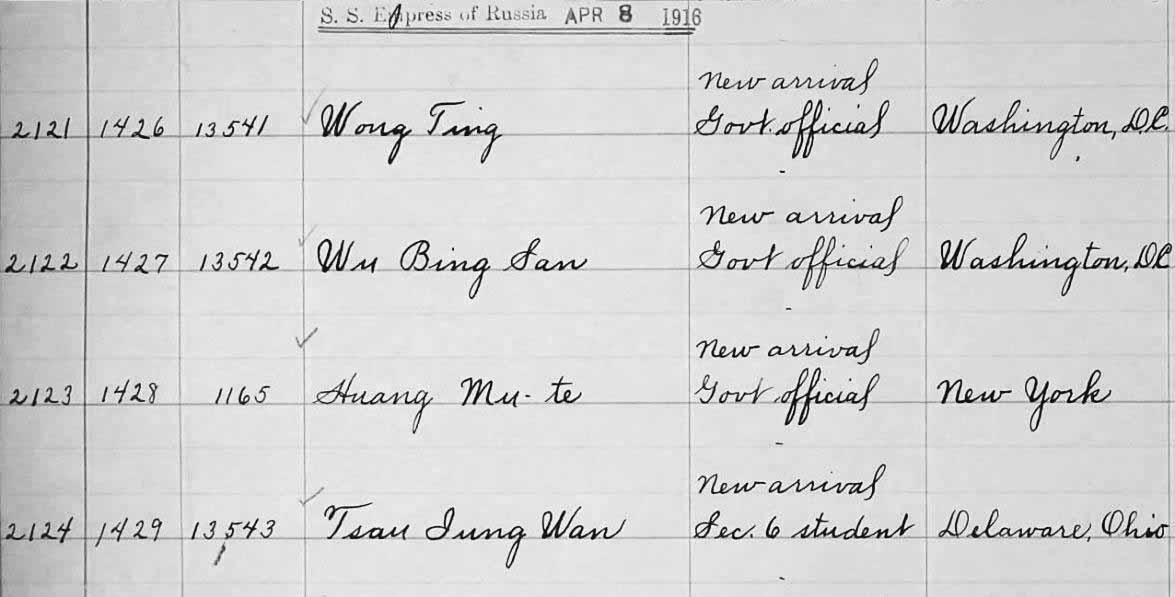 S. S. Empress of Russia APR 8 1916
New arrival
2121 1426 13541 Wong Ting Govt. official Washington, D.C.
New arrival
2122 1427 13542 Wu Bing San Govt official Washington, D.C.
New arrival
2123 1428 1165 Huang Mu-te Govt official New York
New arrival
2124 1429 13543 Tsau Iung Wan Sec. 6 student Delaware, Ohio